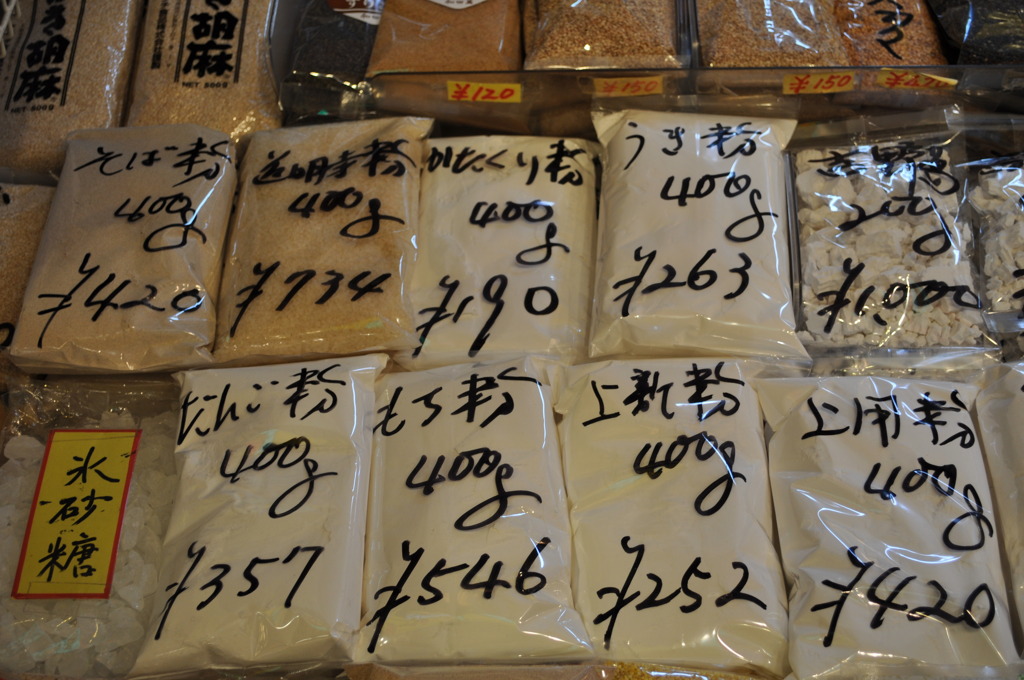 胡麻
NET 500g
胡麻
NET 500g
¥120
¥150
¥150
そば粉
400g
¥420
道明寺粉
400g
¥734
かたくり粉
400g
¥190
うき粉
400g
¥263
200g
¥1,000
氷砂糖
だんご粉
400g
¥357
もち粉
400g
¥546
上新粉
400g
¥252
上用粉
400g
¥420